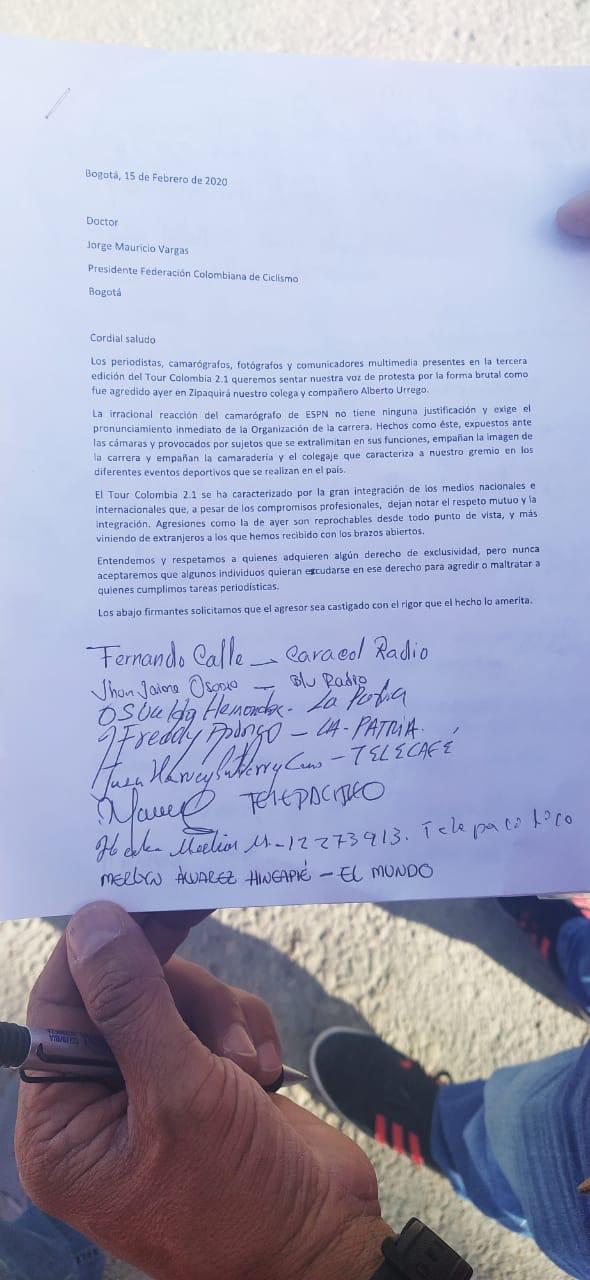 Bogotá, 15 de Febrero de 2020
Doctor
Jorge Mauricio Vargas
Presidente Federación Colombiana de Ciclismo
Bogotá
Cordial saludo
Los periodistas, camarógrafos, fotógrafos y comunicadores multimedia presentes en la tercera
edición del Tour Colombia 2.1 queremos sentar nuestra voz de protesta por la forma brutal como
fue agredido ayer en Zipaquirá nuestro colega y compañero Alberto Urrego.
La irracional reacción del camarógrafo de ESPN no tiene ninguna justificación y exige el
pronunciamiento inmediato de la Organización de la carrera. Hechos como éste, expuestos ante
las cámaras y provocados por sujetos que se extralimitan en sus funciones, empañan la imagen de
la carrera y empañan la camaradería y el colegaje que caracteriza a nuestro gremio en los
diferentes eventos deportivos que se realizan en el país.
El Tour Colombia 2.1 se ha caracterizado por la gran integración de los medios nacionales e
internacionales que, a pesar de los compromisos profesionales, dejan notar el respeto mutuo y la
integración. Agresiones como la de ayer son reprochables desde todo punto de vista, y más
viniendo de extranjeros a los que hemos recibido con los brazos abiertos.
Entendemos y respetamos a quienes adquieren algún derecho de exclusividad, pero nunca
aceptaremos que algunos individuos quieran escudarse en ese derecho para agredir o maltratar a
quienes cumplimos tareas periodísticas.
Los abajo firmantes solicitamos que el agresor sea castigado con el rigor que el hecho lo amerita.
Fernando Calle — Caracol Radio
Jhon Jaime Osorio — Blu Radio
Hernandez - La
Freddy - LA-PATRIA.
Harvey - TELECAFÉ
TELEPACIFICO
M-12273913. Telepacifico
MERLYN ALVAREZ HINCAPIÉ - EL MUNDO